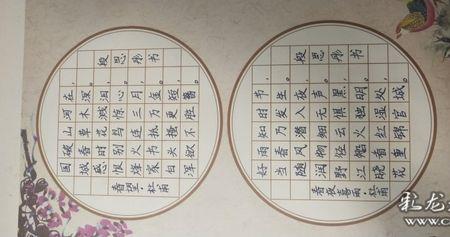 春望·杜甫
国破山河在，
城春草木深。
感时花溅泪，
恨别鸟惊心。
烽火连三月，
家书抵万金。
白头搔更短，
浑欲不胜簪。
段思彤书
春夜喜雨·杜甫
好雨知时节，
当春乃发生。
随风潜入夜，
润物细无声。
野径云俱黑，
江船火独明。
晓看红湿处，
花重锦官城。
段思彤书